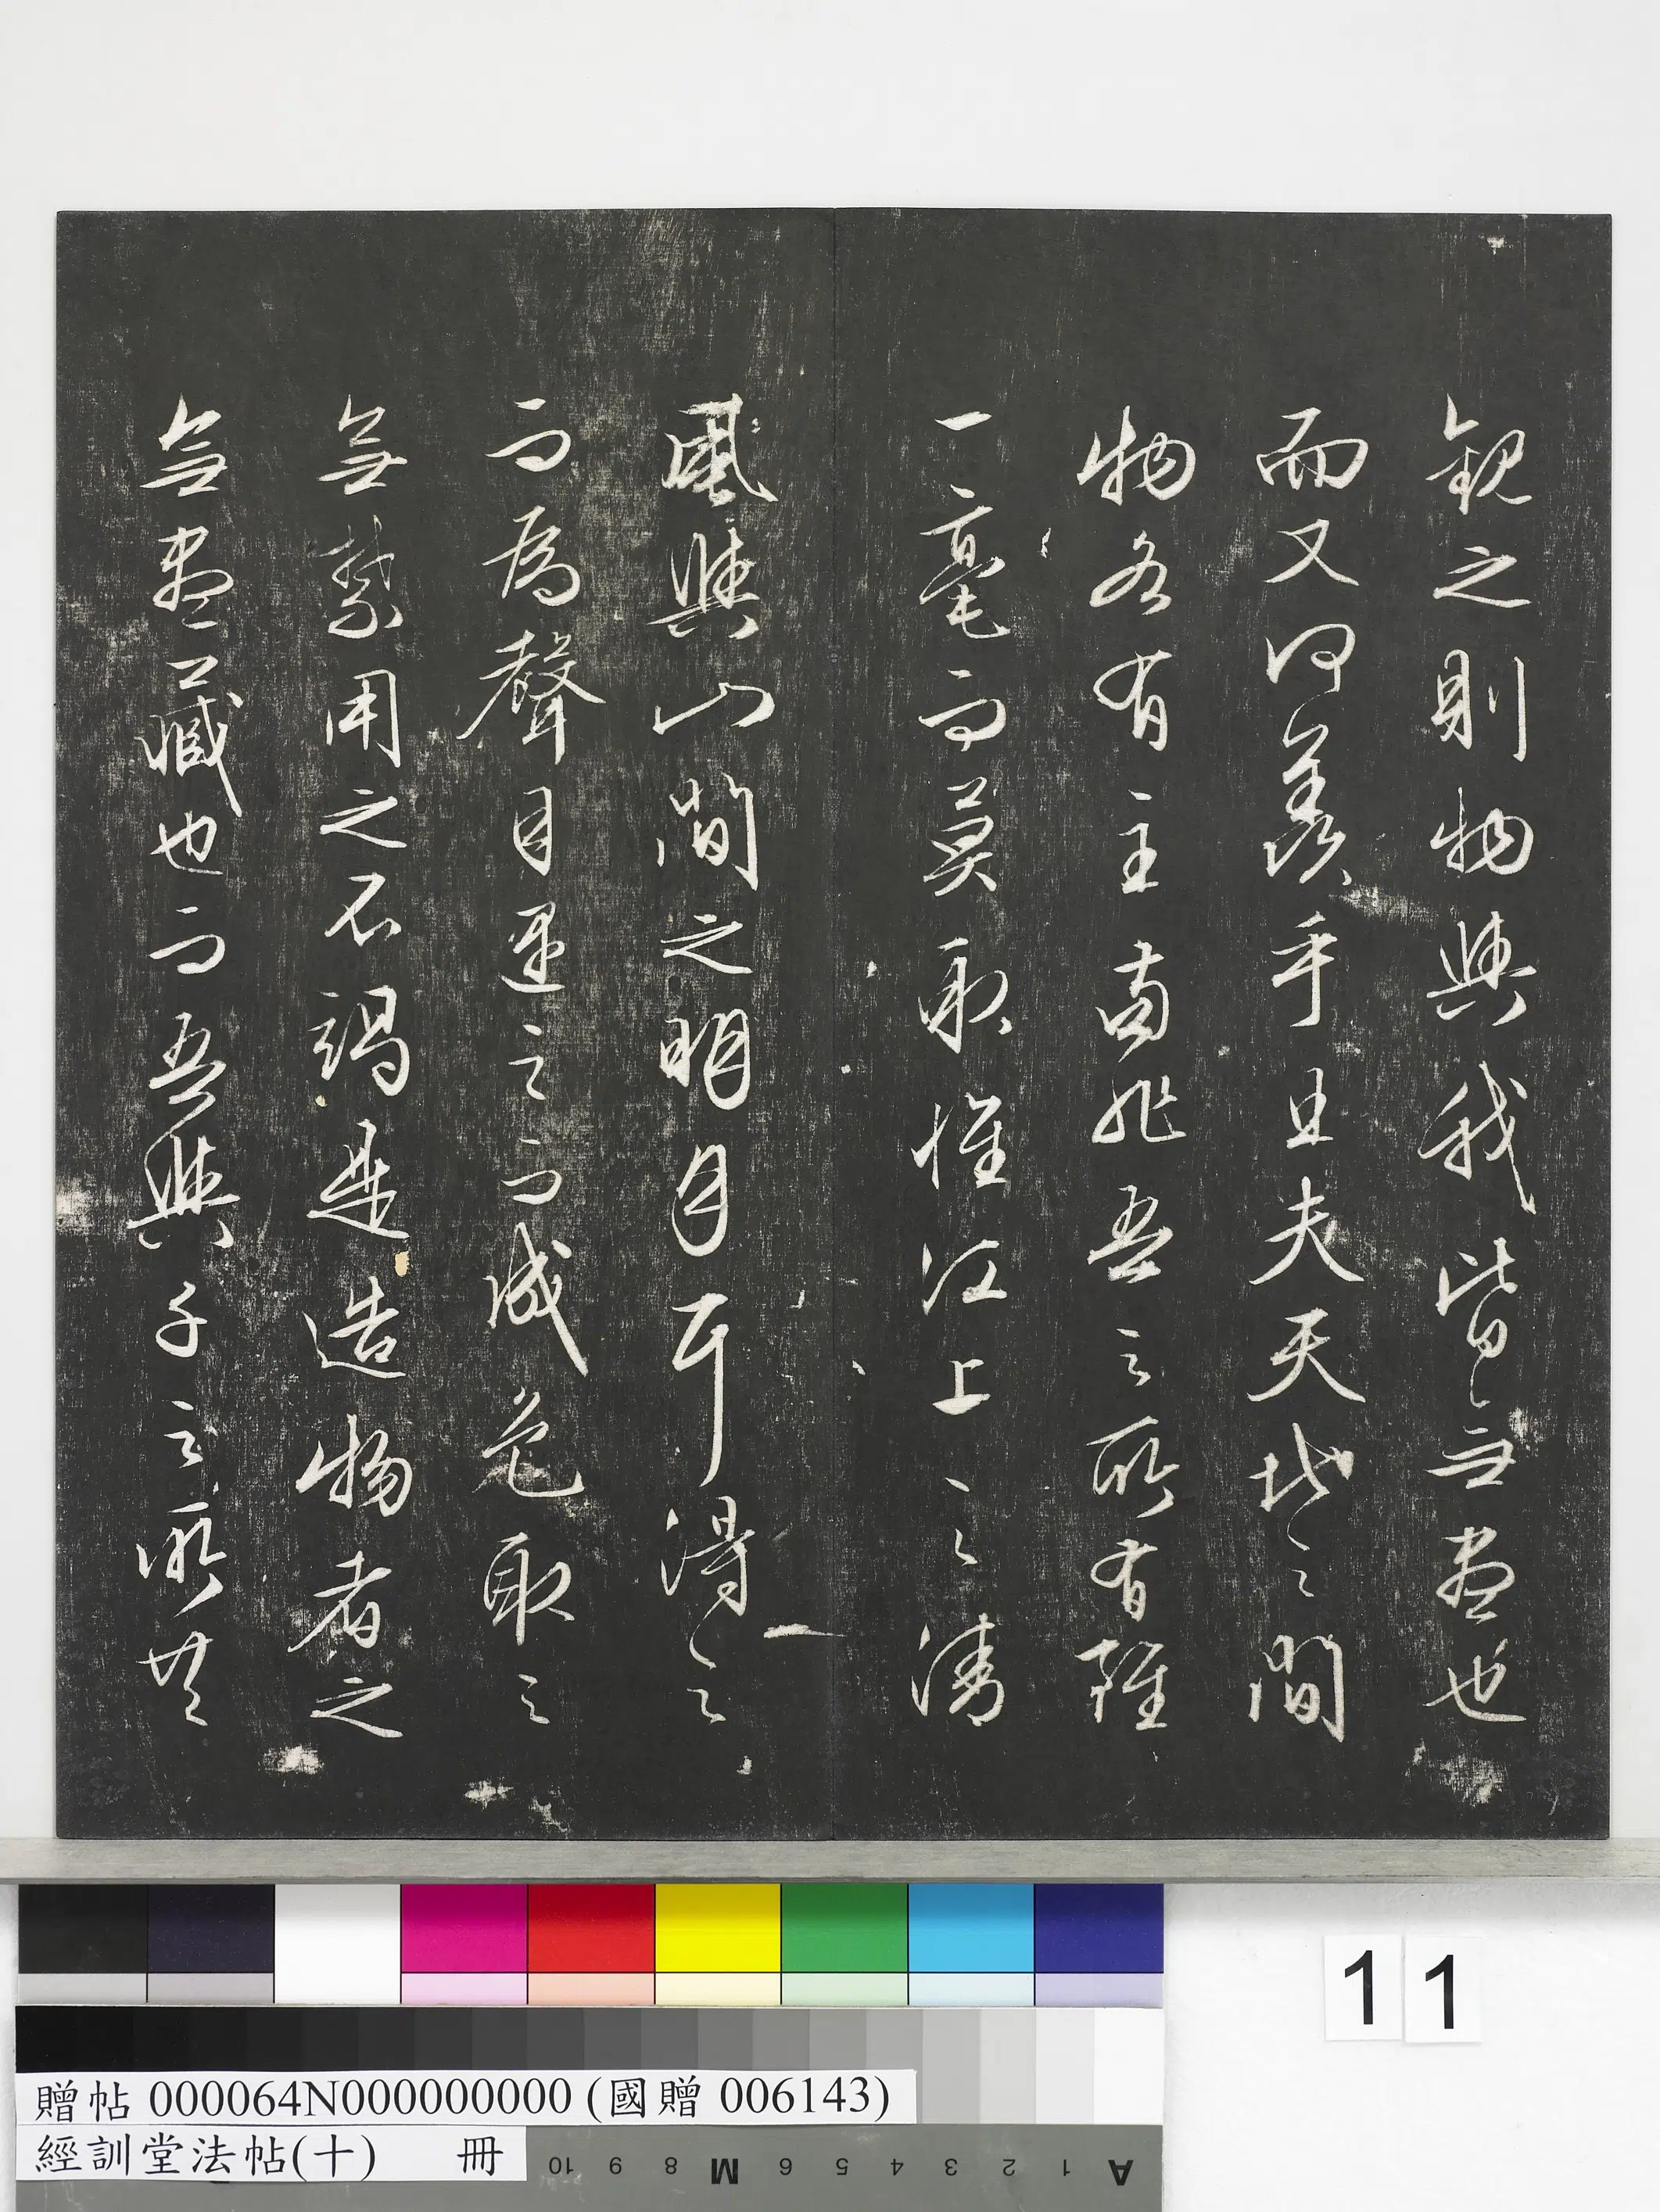 觀之則物與我皆無盡也
而又何羨乎且夫天地之間
物各有主苟非吾之所有雖
一毫而莫取惟江上之清
風與山間之明月耳得之
而為聲目遇之而成色取之
無禁用之不竭是造物者之
無盡藏也而吾與子之所共
11
贈帖 000064N000000000 (國贈 006143)
經訓堂法帖(十) 冊
10 9 8 M 6 5 4 3 2 1 A